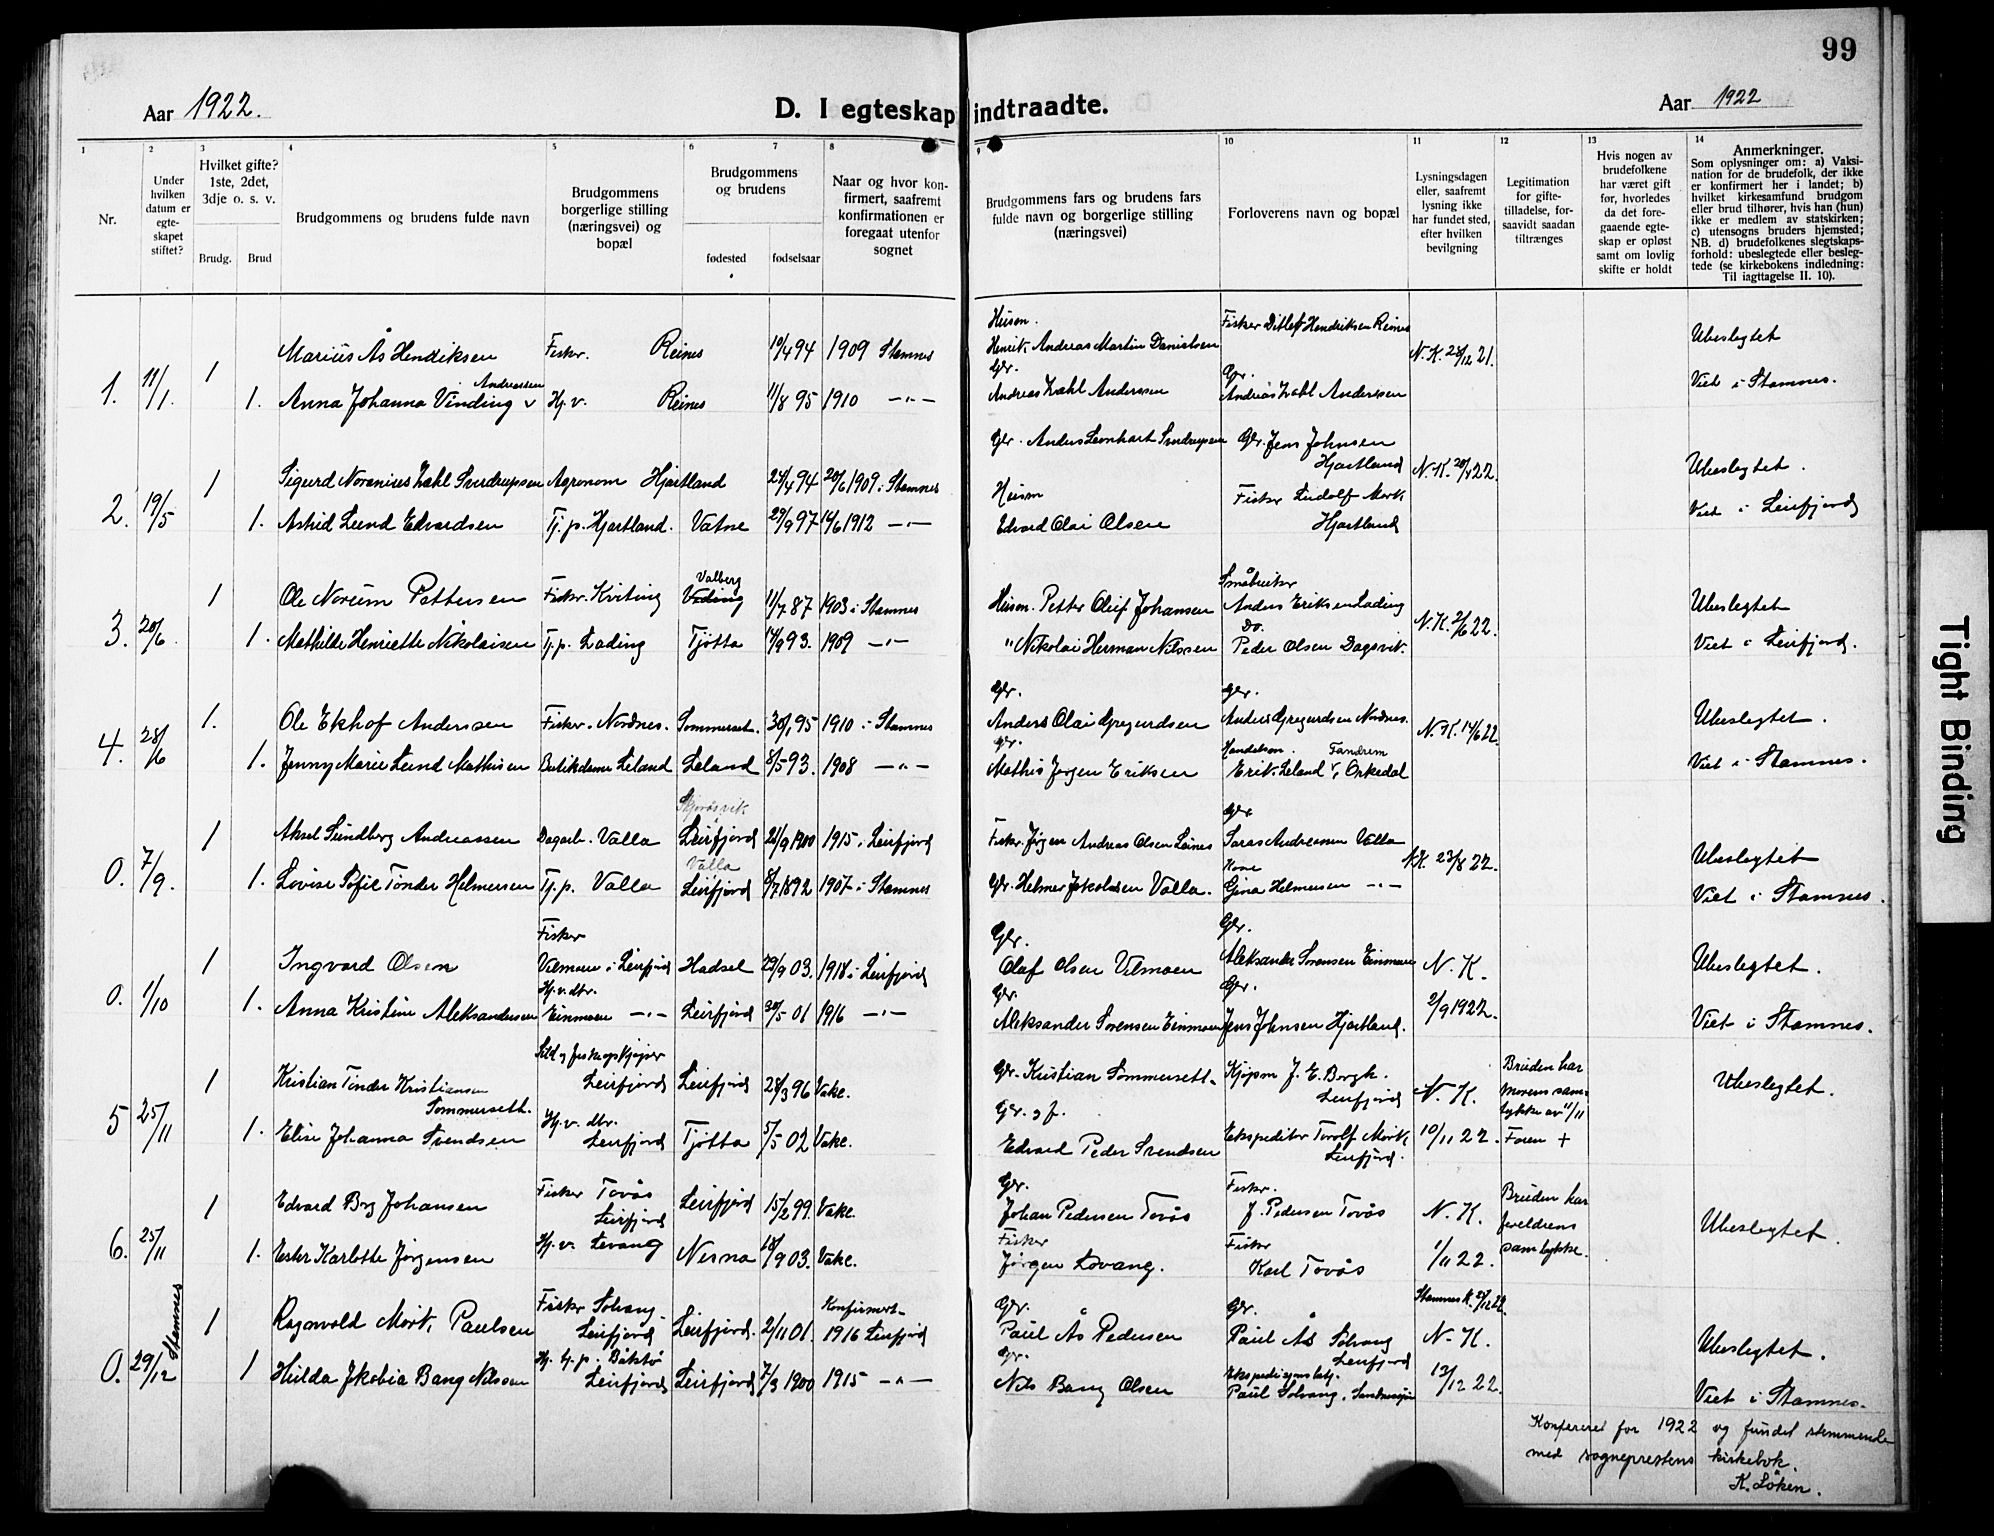 99
Aar 1922.
D. I egteskap indtraadte.
Aar 1922
1 2 3 4 5 6 7 8 9 10 11 12 13 14
Nr.
Under hvilken datum er egteskapet stiftet?
Hvilket gifte? 1ste, 2det, 3dje o. s. v.
Brudg. Brud
Brudgommens og brudens fulde navn
Brudgommens borgerlige stilling (næringsvei) og bopæl
Brudgommens og brudens
fødested fødselsaar
Naar og hvor konfirmert, saafremt konfirmationen er foregaat utenfor sognet
Brudgommens fars og brudens fars fulde navn og borgerlige stilling (næringsvei)
Forloverens navn og bopæl
Lysningsdagen eller, saafremt lysning ikke har fundet sted, efter hvilken bevilgning
Legitimation for giftetilladelse, forsaavidt saadan tiltrænges
Hvis nogen av brudefolkene har været gift før, hvorledes da det foregaaende egteskap er opløst samt om lovlig skifte er holdt
Anmerkninger.
Som oplysninger om: a) Vaksination for de brudefolk, der ikke er konfirmert her i landet; b) hvilket kirkesamfund brudgom eller brud tilhører, hvis han (hun) ikke er medlem av statskirken; c) utensogns bruders hjemsted; NB. d) brudefolkenes slegtskapsforhold: ubeslegtede eller beslegtede (se kirkebokens indledning: Til iagttagelse II. 10).
1. 11/1. 1 Marius Ås Hendriksen Fisker. Reines 10/4 94 1909 Stamnes Husm. Henrik Andreas Martin Danielsen Fisker Ditlef Hendriksen Reines N.K. 28/12 21. Ubeslegtet
1. Anna Johanna Vinding v Andreassen Hj. v. Reines 11/8 95 1910 —"— Gbr. Andreas Zahl Anderssen Gbr. Andreas Zahl Anderssen Viet i Stamnes.
2. 19/5 1 Sigurd Noranius Zahl Sverdrupsen Agronom Hjartland 24/4 94 20/6 1909 i Stamnes Gbr. Anders Leonhart Sverdrupsen Gbr. Jens Johnsen Hjartland N.K. 20/4 22. Ubeslegtet.
1. Astrid Lund Edvardsen Tj. p. Hjartland. Vatne 29/9 97 14/6 1912 —"— Husm Edvard Olai Olsen Fisker Ludolf Mork Hjartland Viet i Leirfjord
3. 20/6. 1 Ole Norum Pettersen Fisker. Kviting Valberg 11/7 87 1903 i Stamnes Husm. Petter Oluf Johansen Småbruker Anders Eriksen Lading N.K. 2/6 22. Ubeslegtet
1. Mathilde Henriette Nikolaisen Tj. p. Lading Tjötta 14/9 93. 1909 —"— " Nikolai Herman Nilssen Do. Peder Olsen Dagsvik. Viet i Leirfjord.
4. 28/6 1. Ole Ekhof Anderssen Fisker. Nordnes. Sommerset. 30/1 95 1910 i Stamnes Gbr. Anders Olai Gregersen Gbr. Anders Gregersen Nordnes. N.K. 14/6 22. Ubeslegtet.
1. Jenny Marie Lund Mathisen Butikdame Leland Leland 8/5 93. 1908 —"— Gbr. Mathis Jørgen Eriksen Handelsm. Erik Leland v, Fandrem Orkedal Viet i Stamnes.
0. 7/9. 1 Aksel Sundberg Andreassen Dagarb. Valla Leirfjord 21/9 1900 1915 i Leirfjord Fisker. Jørgen Andreas Olsen Leines Gbr Andreassen Valla N.K. 23/8 22. Ubeslegtet
1. Lovise Sofie Tønder Helmersen Tj. p. Valla Valla Leirfjord 8/7 1892 1907 i Stamnes Gbr. Helmer Jakobsen Valla. Kone Gina Helmersen —"— Viet i Stamnes.
0. 1/10 1 Ingvard Olsen Fisker Ulmoen i Leirfjord Hadsel 29/9 03. 1918 i Leirfjord Gbr. Olaf Olsen Ulmoen Gbr. Aleksander Sørensen Einmoen N.K. 2/9 1922. Ubeslegtet.
1. Anna Kristine Aleksandersen Hj. v. dtr. Einmoen —"— Leirfjord 30/5 01 1916 —"— Gbr. Aleksander Sørensen Einmoen Gbr. Jens Johnsen Hjartland. Viet i Stamnes.
5 25/11 1 Kristian Tinder Kristiansen Sommerseth. Sild og fiskeopkjøper Leirfjord Leirfjord 28/3 96 Vake. Gbr. Kristian Sommersett. Kjøpm J. E. Borgh. Leirfjord N.K. 10/11 22. Bruden har morens samtykke av 11/11 Faren + Ubeslegtet.
1. Elise Johanna Svendsen Hj. v. dtr. Leirfjord Tjøtta 5/5 02 Vake. Gbr. og f. Edvard Peder Svendsen Ekspeditør Torolf Mørk, Leirfjord.
6. 25/11 1 Edvard Brg Johansen Fisker Tovås Leirfjord Leirfjord 15/2 99. Vake. Gbr. Johan Pedersen Tovås Fisker. J. Pedersen Tovås N.K. 1/11 22. Bruden har foreldrens samtykke. Ubeslegtet.
1. Ester Karlotte Jørgensen Hj. v. Levang Nesna 18/9 03. Vake. Fisker Jørgen Lovang. Fisker Karl Tovås
0. 29/12 Stamnes 1 Ragnvald Mørk, Paulsen Fisker Solvang. Leirfjord Leirfjord. 2/11 01. Konfirmert 1916 Leirfjord Gbr. Paul Ås Pedersen Gbr. Paul Ås Solvang Leirfjord Stamnes K. 5/12 22 N.K. 13/12 22. Ubeslegtet.
1 Hulda Jkobia Bang Nilssen Hj. tj. p. Båtstø Leirfjord Leirfjord 7/3 1900 1915 —"— Gbr. Nils Bang Olsen Paul Solvang, Sandnessjøen Viet i Stamnes.
Konfereret for 1922 og fundet stemmende
med sogneprestens kirkebok.
K. Løken.
Tight Binding